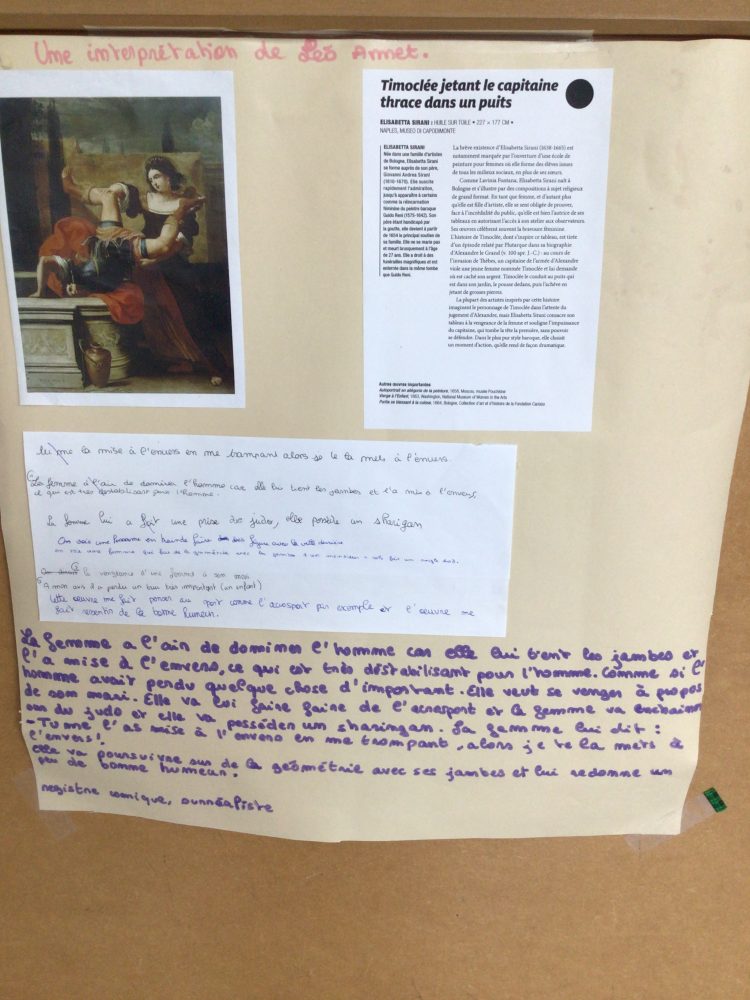 Une interprétation de Léo Armet.
Timoclée jetant le capitaine
thrace dans un puits
ELISABETTA SIRANI : HUILE SUR TOILE • 227 × 177 CM •
NAPLES, MUSEO DI CAPODIMONTE
ELISABETTA SIRANI
Née dans une famille d'artistes
de Bologne, Elisabetta Sirani
se forme auprès de son père,
Giovanni Andrea Sirani
(1610-1670). Elle suscite
rapidement l'admiration,
jusqu'à apparaître à certains
comme la réincarnation
féminine du peintre baroque
Guido Reni (1575-1642). Son
père étant handicapé par
la goutte, elle devient à partir
de 1654 le principal soutien de
sa famille. Elle ne se marie pas
et meurt brusquement à l'âge
de 27 ans. Elle a droit à des
funérailles magnifiques et est
enterrée dans la même tombe
que Guido Reni.
La brève existence d'Elisabetta Sirani (1638-1665) est
notamment marquée par l'ouverture d'une école de
peinture pour femmes où elle forme des élèves issues
de tous les milieux sociaux, en plus de ses sœurs.
Comme Lavinia Fontana, Elisabetta Sirani naît à
Bologne et s'illustre par des compositions à sujet religieux
de grand format. En tant que femme, et d'autant plus
qu'elle est fille d'artiste, elle se sent obligée de prouver,
face à l'incrédulité du public, qu'elle est bien l'autrice de ses
tableaux en autorisant l'accès à son atelier aux observateurs.
Ses œuvres célèbrent souvent la bravoure féminine.
L'histoire de Timoclée, dont s'inspire ce tableau, est tirée
d'un épisode relaté par Plutarque dans sa biographie
d'Alexandre le Grand (v. 100 apr. J.-C.) : au cours de
l'invasion de Thèbes, un capitaine de l'armée d'Alexandre
viole une jeune femme nommée Timoclée et lui demande
où est caché son argent. Timoclée le conduit au puits qui
est dans son jardin, le pousse dedans, puis l'achève en
jetant de grosses pierres.
La plupart des artistes inspirés par cette histoire
imaginent le personnage de Timoclée dans l'attente du
jugement d'Alexandre, mais Elisabetta Sirani consacre son
tableau à la vengeance de la femme et souligne l'impuissance
du capitaine, qui tombe la tête la première, sans pouvoir
se défendre. Dans le plus pur style baroque, elle choisit
un moment d'action, qu'elle rend de façon dramatique.
Autres œuvres importantes
Autoportrait en allégorie de la peinture, 1658, Moscou, musée Pouchkine
Vierge à l'Enfant, 1663, Washington, National Museum of Women in the Arts
Portia se blessant à la cuisse, 1664, Bologne, Collection d'art et d'histoire de la Fondation Carisbo
me la mise à l'envers en me trompant alors je te la mets à l'envers.
La femme a l'air de dominer l'homme car elle lui tient les jambes et l'a mis à l'envers,
ce qui est très destabilisant pour l'homme.
La femme lui a fait une prise de judo, elle possède un sharigan
On vois une femme
la vengeance d'une femme à son mari
A mon avis il a perdu un truc très important (un enfant)
cette œuvre me fait penser au sport comme l'acrosport par exemple et l'œuvre me
fait ressentir de la bonne humeur.
La femme a l'air de dominer l'homme car elle lui tient les jambes et
l'a mise à l'envers, ce qui est très déstabilisant pour l'homme. Comme si l'
homme avait perdu quelque chose d'important. Elle veut se venger à propos
de son mari. Elle va lui faire faire de l'acrosport et la femme va enchainer
sur du judo et elle va posséder un sharingan. La femme lui dit :
- Tu me l'as mise à l'envers en me trompant, alors je te la mets à
l'envers!
elle va poursuivre sur de la géométrie avec ses jambes et lui redonne un
peu de bonne humeur.
registre comique, surréaliste